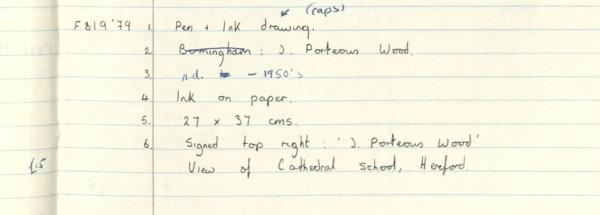 (caps)
F819'79 1. Pen + Ink drawing.
2. Birmingham : J. Porteous Wood.
3. n.d. - 1950's
4. Ink on paper.
5. 27 x 37 cms.
6. Signed top right : 'J. Porteous Wood'
£15 View of Cathedral School, Hereford.